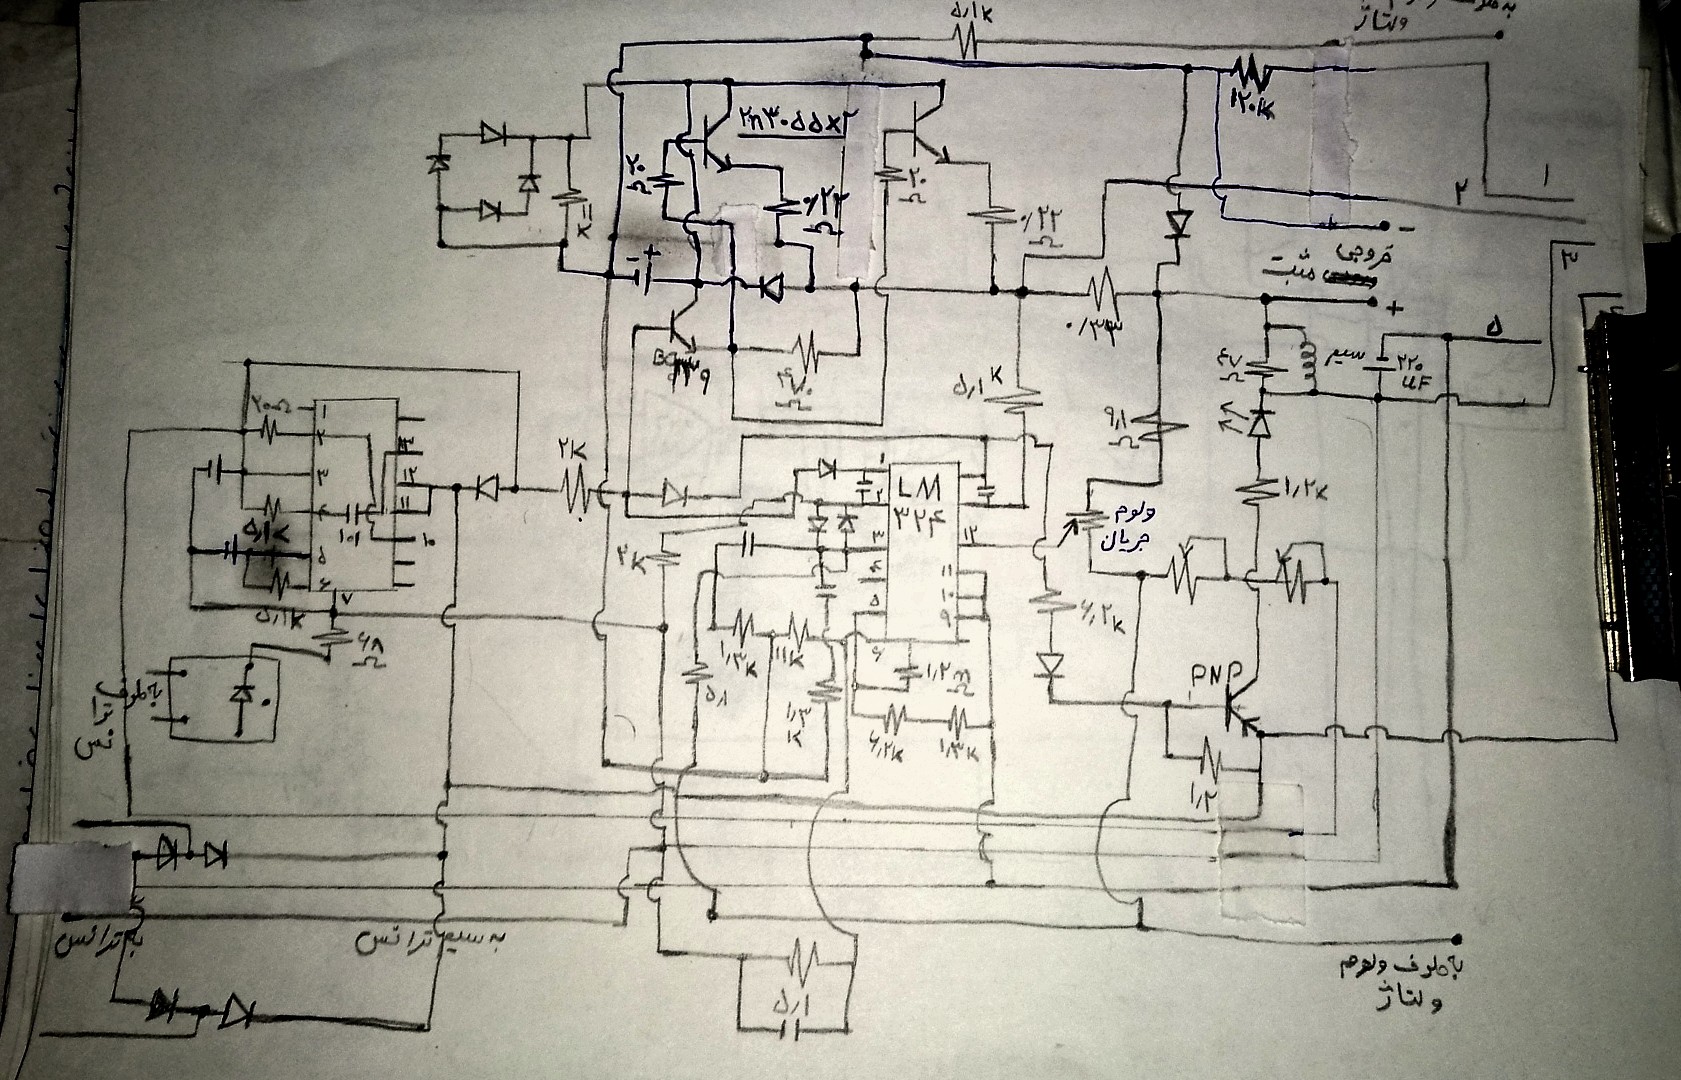 ۵٫۱k
ولتاژ
۱۲۰k
2n۳۰۵۵x۲
۲۰
Ω
۰/۲۲
Ω
۲۰
Ω
۰/۲۲
Ω
۱
۲
-
+
-
خروجی
مثبت
+
۳
۵
۰/۳۳
۴۷
Ω
سیم
۲۲۰
uF
۵٫۱k
۹٫۱
Ω
۲۰Ω
۱
۲
۳
۵
۶
۷
۱۳
۱۲
۱۱
۱۰
۱۰۱
۵٫۱k
۵٫۱k
۶۸
Ω
۲k
۲k
LM
۳۲۴
۱
۲
۳
۴
۵
۶
۱۲
۱۱
۱۰
۹
ولوم
جریان
۱٫۲k
۶٫۲k
۱٫۳k
۱۱k
۵٫۱
۱٫۳
k
۱٫۲m
Ω
۶٫۲k
۱٫۳k
PNP
۱٫۲
به ترانس
به سیم ترانس
۵٫۱
به طرف ولوم
ولتاژ